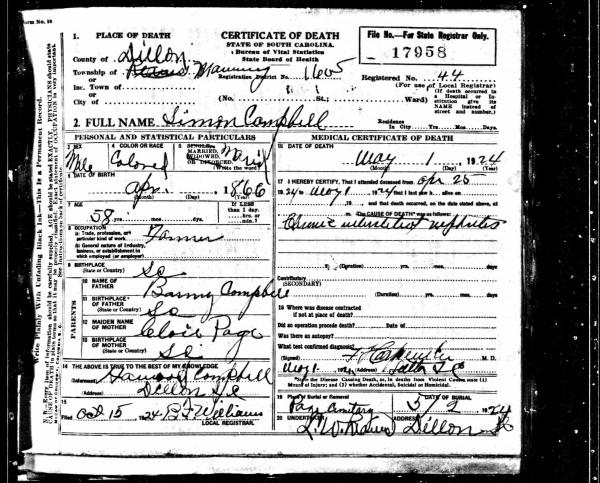 Form No. 10
1. PLACE OF DEATH
County of Dillon
Township of Manning
or
Inc. Town of
or
City of
CERTIFICATE OF DEATH
STATE OF SOUTH CAROLINA.
Bureau of Vital Statistics
State Board of Health
Registration District No. 1605
(No. St.; Ward)
File No.—For State Registrar Only.
17958
Registered No. 44
(For use of Local Registrar)
(If death occurred in a Hospital or Institution give its NAME instead of street and number.)
2. FULL NAME Simon Campbell
Residence In City Yrs. Mos. Days.
PERSONAL AND STATISTICAL PARTICULARS
3 SEX
Male
4 COLOR OR RACE
Colored
5 SINGLE, MARRIED, WIDOWED, OR DIVORCED
(Write the word)
6 DATE OF BIRTH
Apr. 1866
(Month) (Day) (Year)
7 AGE
58 yrs. mos. ds.
If LESS than 1 day, hrs. or min.?
8 OCCUPATION
(a) Trade, profession, or particular kind of work Farmer
(b) General nature of industry, business, or establishment in which employed (or employer)
9 BIRTHPLACE
(State or Country) SC
PARENTS
10 NAME OF FATHER Barny Campbell
11 BIRTHPLACE OF FATHER
(State or Country) SC
12 MAIDEN NAME OF MOTHER Page
13 BIRTHPLACE OF MOTHER
(State or Country) SC
14 THE ABOVE IS TRUE TO THE BEST OF MY KNOWLEDGE
(Informant) Campbell
Dillon S.C
Filed Oct 15 1924 B F Williams
LOCAL REGISTRAR.
MEDICAL CERTIFICATE OF DEATH
16 DATE OF DEATH
May 1 1924
(Month) (Day) (Year)
17 I HEREBY CERTIFY, That I attended deceased from Apr 25
1924 to May 1 1924 that I last saw h alive on
19 and that death occurred, on the date stated above, at
m. The CAUSE OF DEATH* was as follows:
Chronic interstitial nephritis
(Duration) yrs. mos. days
Contributory
(SECONDARY)
(Duration) yrs. mos. days
18 Where was disease contracted
if not at place of death?
Did an operation precede death? Date of
Was there an autopsy?
What test confirmed diagnosis?
(Signed) M. D.
May 1 192 Dillon S C
*State the Disease Causing Death, or, in deaths from Violent Causes, state (1) Means of Injury; and (2) whether Accidental, Suicidal or Homicidal.
19 Place of Burial or Removal
Page Cemetery
DATE OF BURIAL
5/2 1924
20 UNDERTAKER
L. W.
ADDRESS
Dillon SC